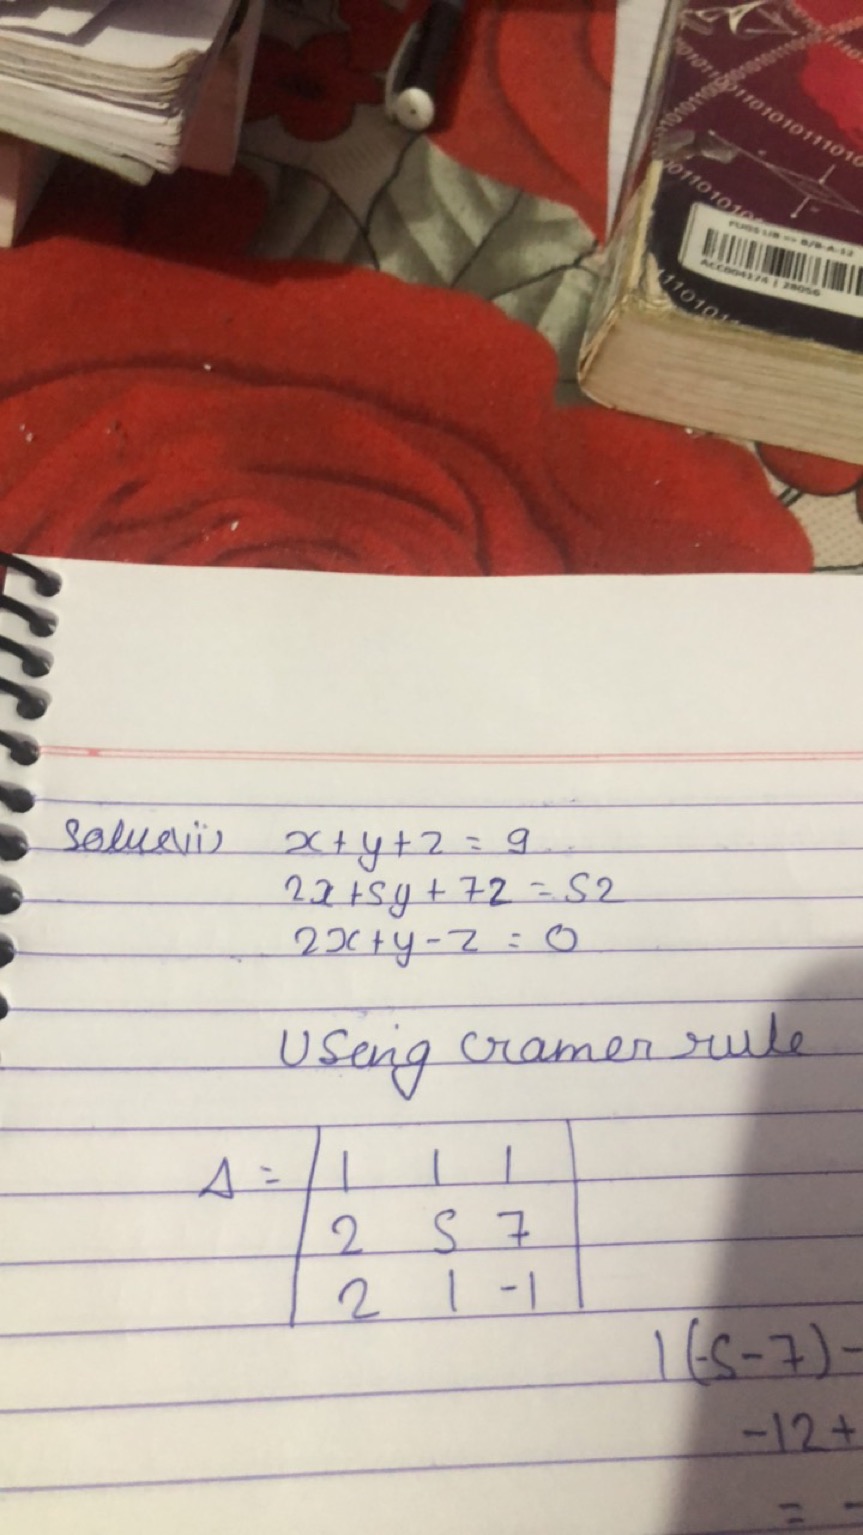 0110101011101
PUSSLIB >> B/B-A-12
ACC004174 | 28056
Soluevii) x+y+z = 9
2x+5y+7z = 52
2x+y-z = 0
USeing cramer rule
Δ = | 1 1 1 |
2 5 7
2 1 -1
1(-5-7)-
-12+
= -